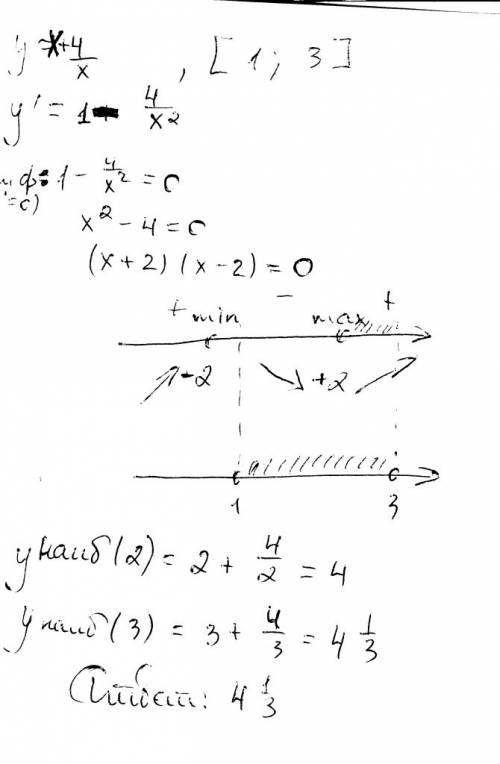 y = x + 4/x , [1; 3]
y' = 1 - 4/x²
1 - 4/x² = 0
x² - 4 = 0
(x + 2)(x - 2) = 0
+ min - max +
-2 +2
1 3
y наиб (2) = 2 + 4/2 = 4
y наиб (3) = 3 + 4/3 = 4 1/3
Ответ: 4 1/3